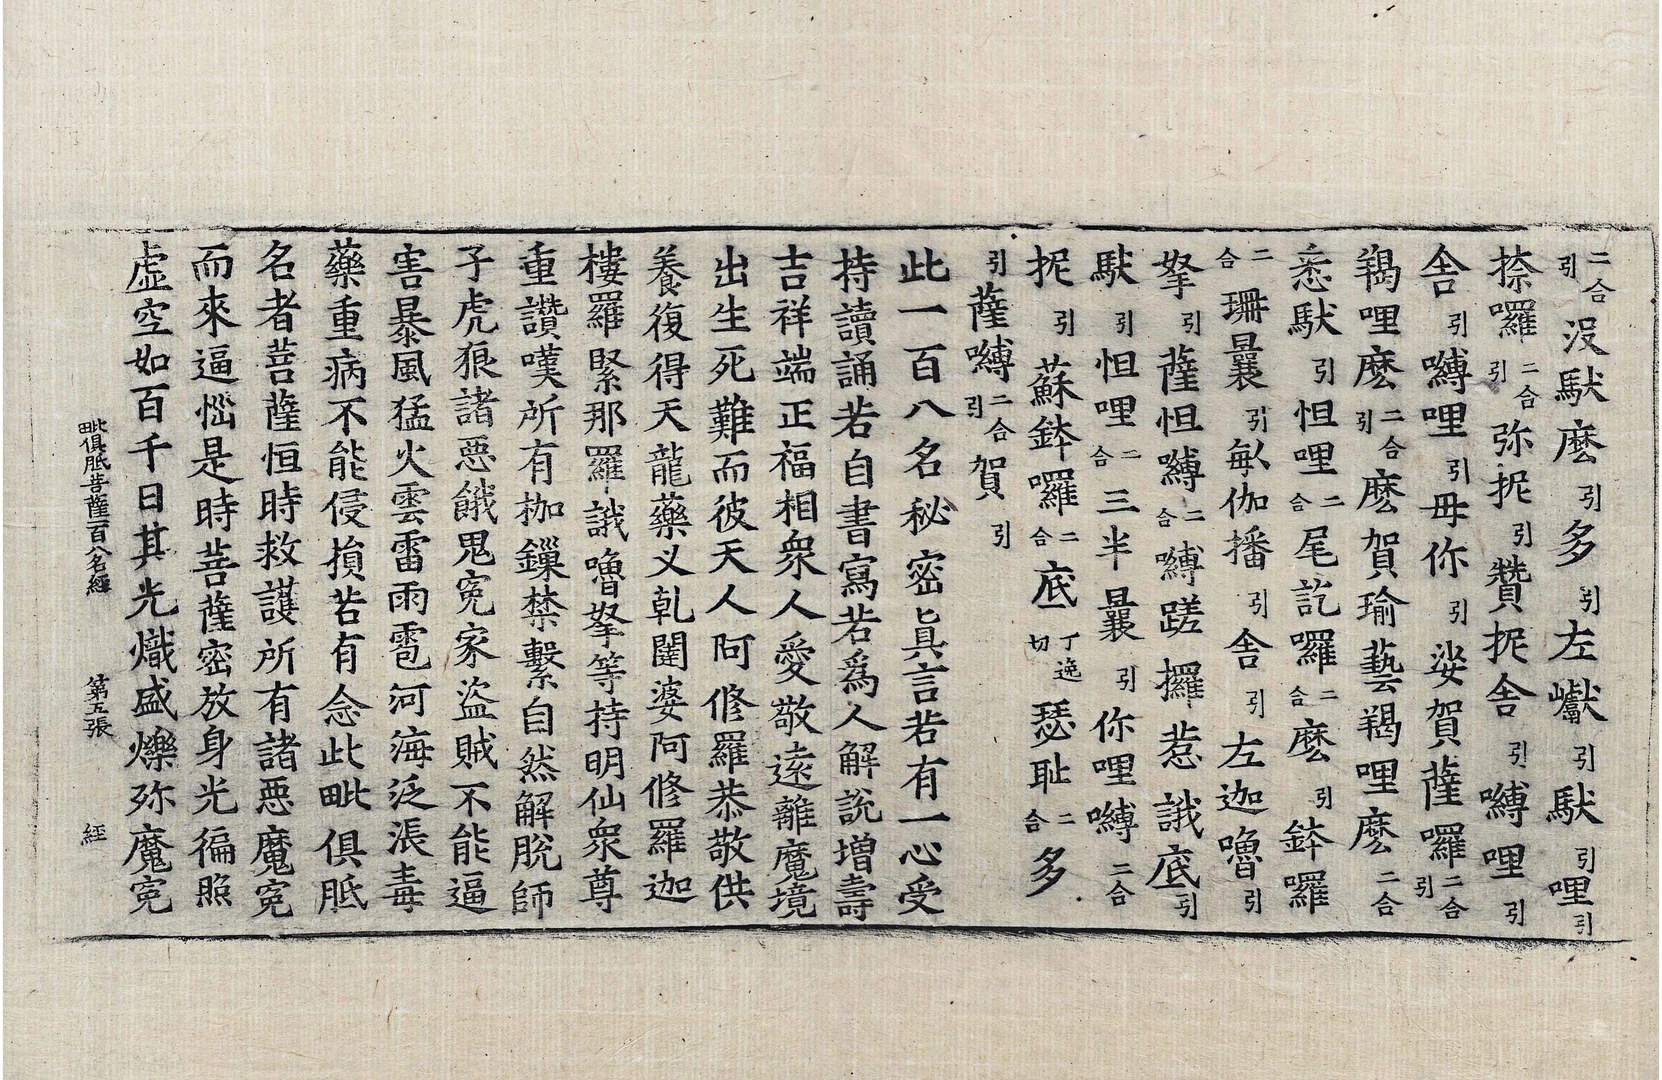 二合引沒馱麽引多引左巘引馱引哩引
捺囉二合引弥抳引贊抳舍引嚩哩引
舍引嚩哩引毋你引娑賀薩囉二合引
羯哩麽二合引麽賀瑜藝羯哩麽二合
悉馱引怛哩二合尾訖囉二合麽引鉢囉
二合珊曩引每伽播引舍引左迦嚕引
拏引薩怛嚩二合嚩蹉攞惹誐底引
馱引怛哩二合三半曩引你哩嚩二合
抳引蘇鉢囉二合底丁逸切瑟耻二合多
引薩嚩二合引賀引
此一百八名秘密眞言若有一心受
持讀誦若自書寫若爲人解說增壽
吉祥端正福相衆人愛敬遠離魔境
出生死難而彼天人阿修羅恭敬供
養復得天龍藥叉乹闥婆阿修羅迦
樓羅緊那羅誐嚕拏等持明仙衆尊
重讚嘆所有枷鏁禁繫自然解脫師
子虎狼諸惡餓鬼寃家盜賊不能逼
害暴風猛火雲雷雨雹河海泛漲毒
藥重病不能侵損若有念此毗俱胝
名者菩薩恒時救護所有諸惡魔寃
而來逼惱是時菩薩密放身光徧照
虛空如百千日其光熾盛爍弥魔寃
毗俱胝菩薩一百八名經 第五張 經